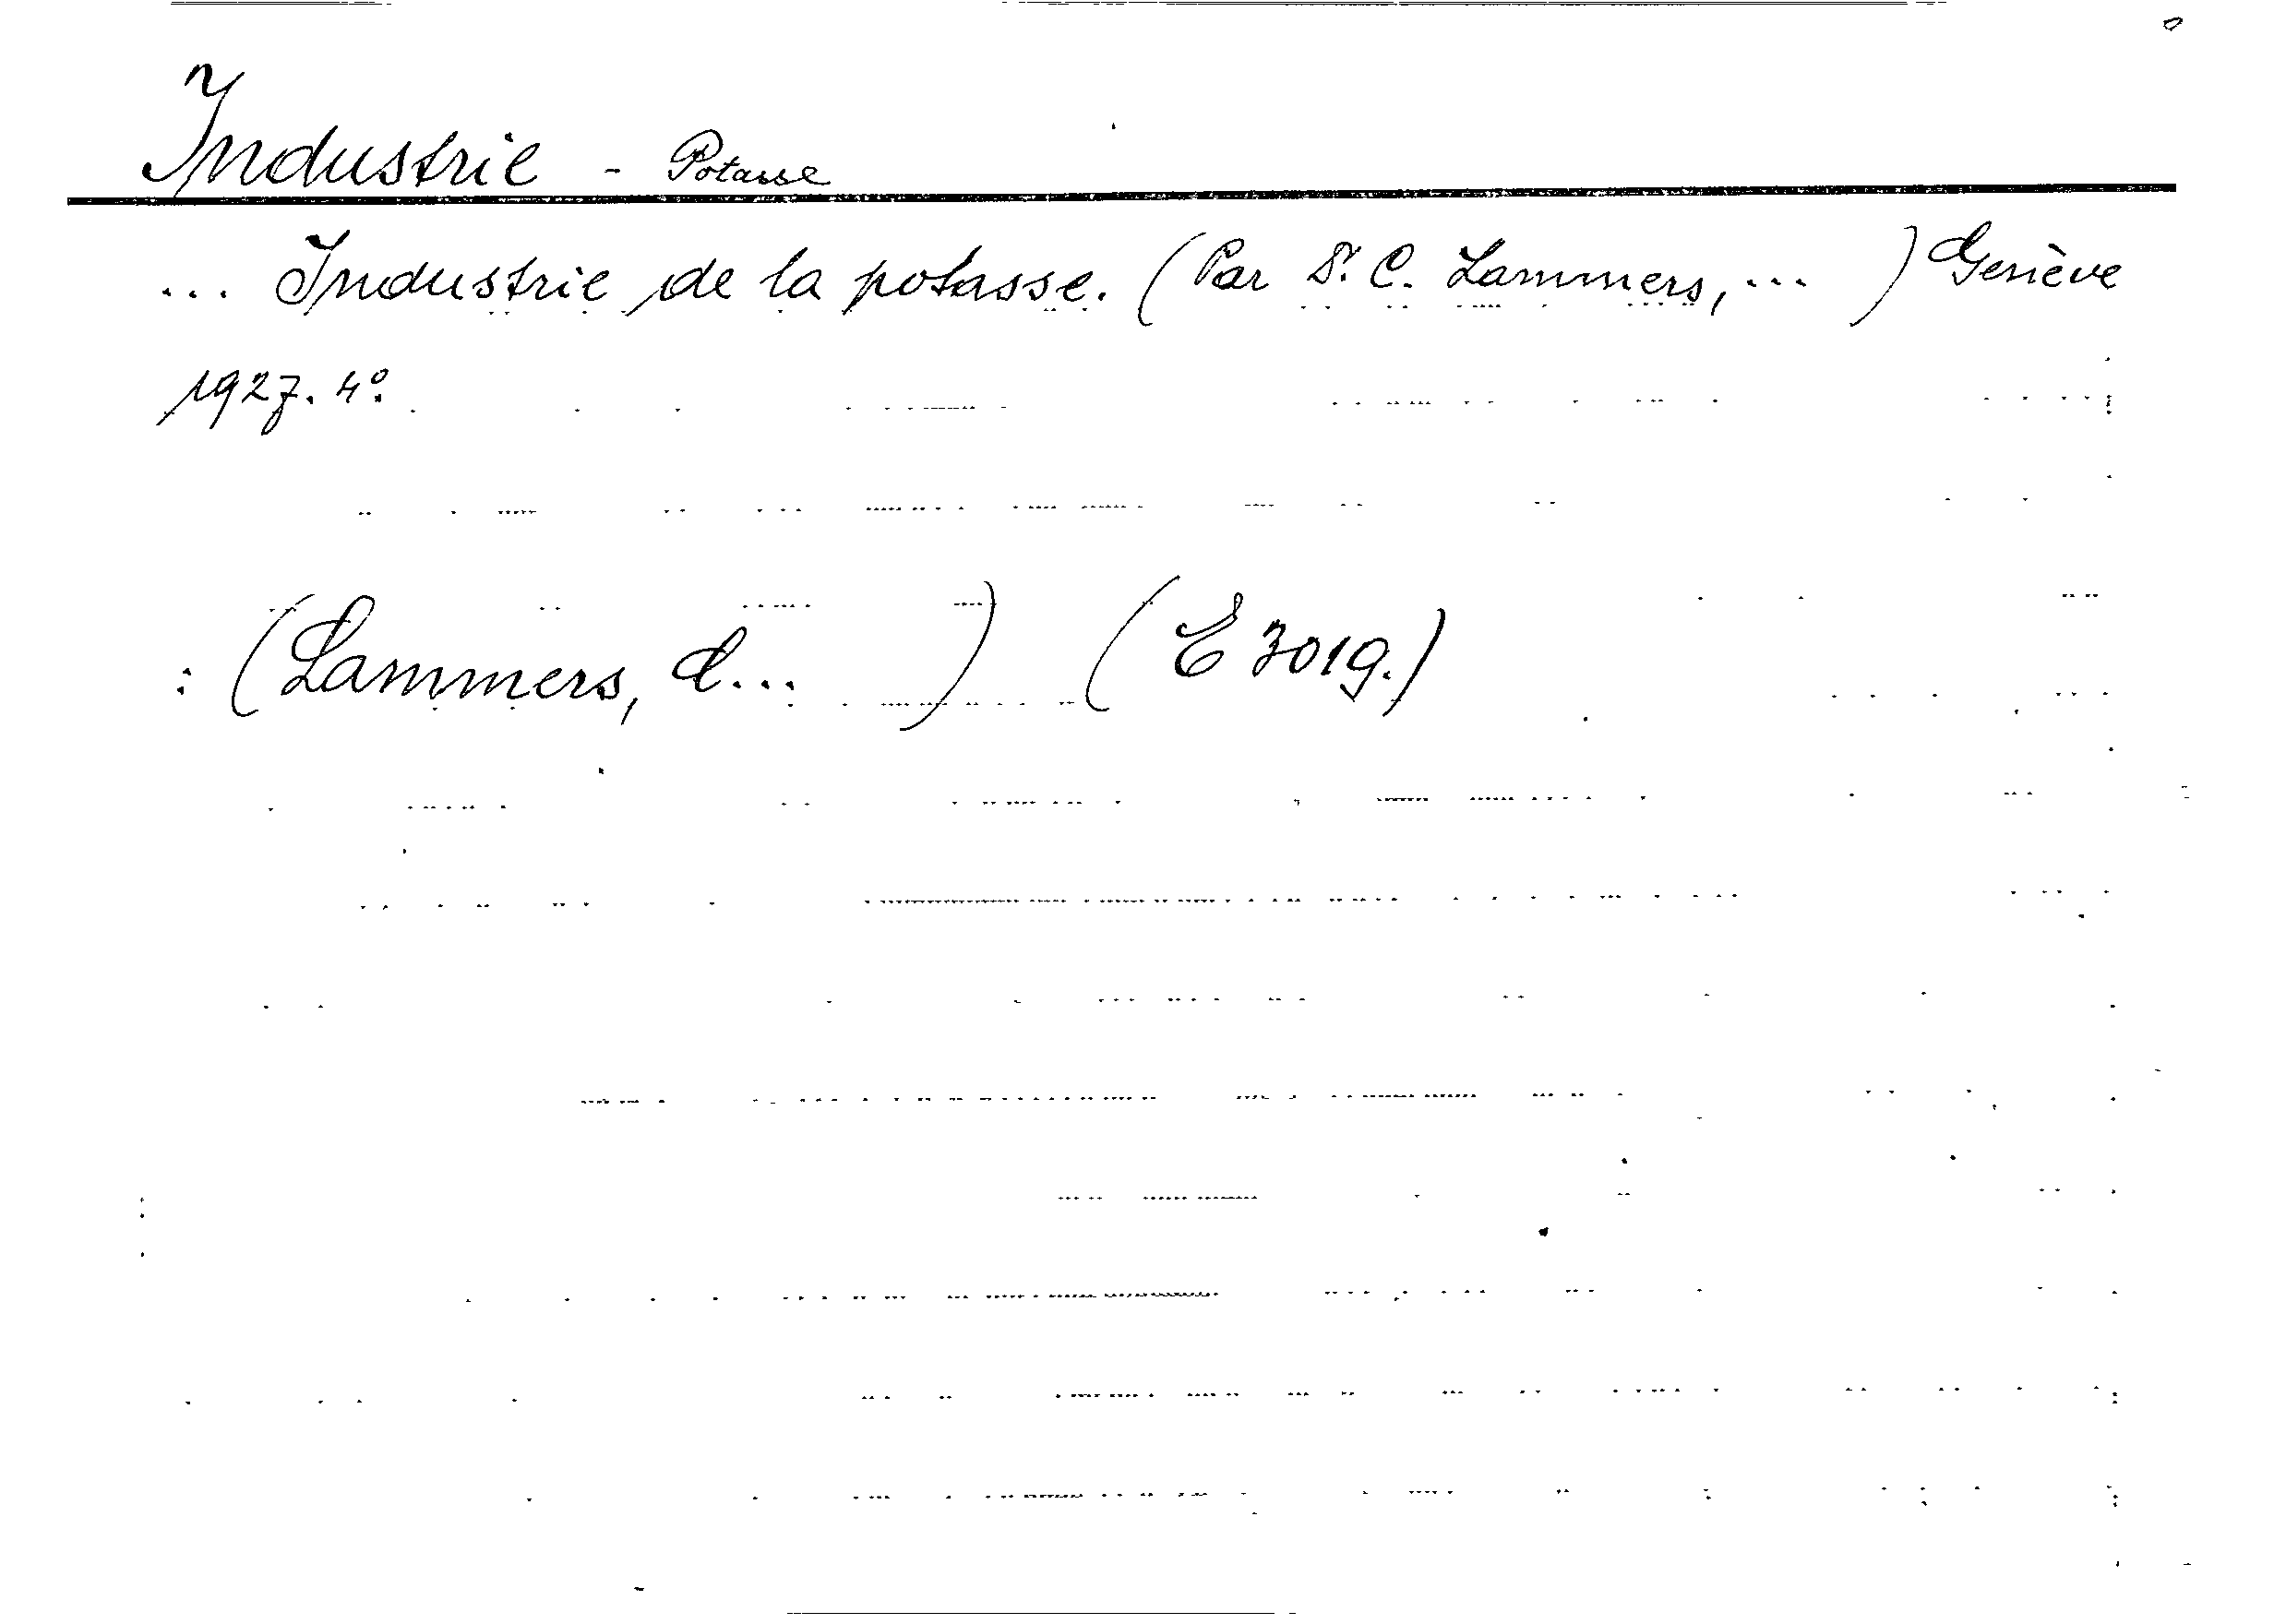 Industrie - Potasse
... Industrie de la potasse. (Par Dr. C. Lammers, ... ) Genève
1927. 4º.
: (Lammers, C... ) (E 3019.)